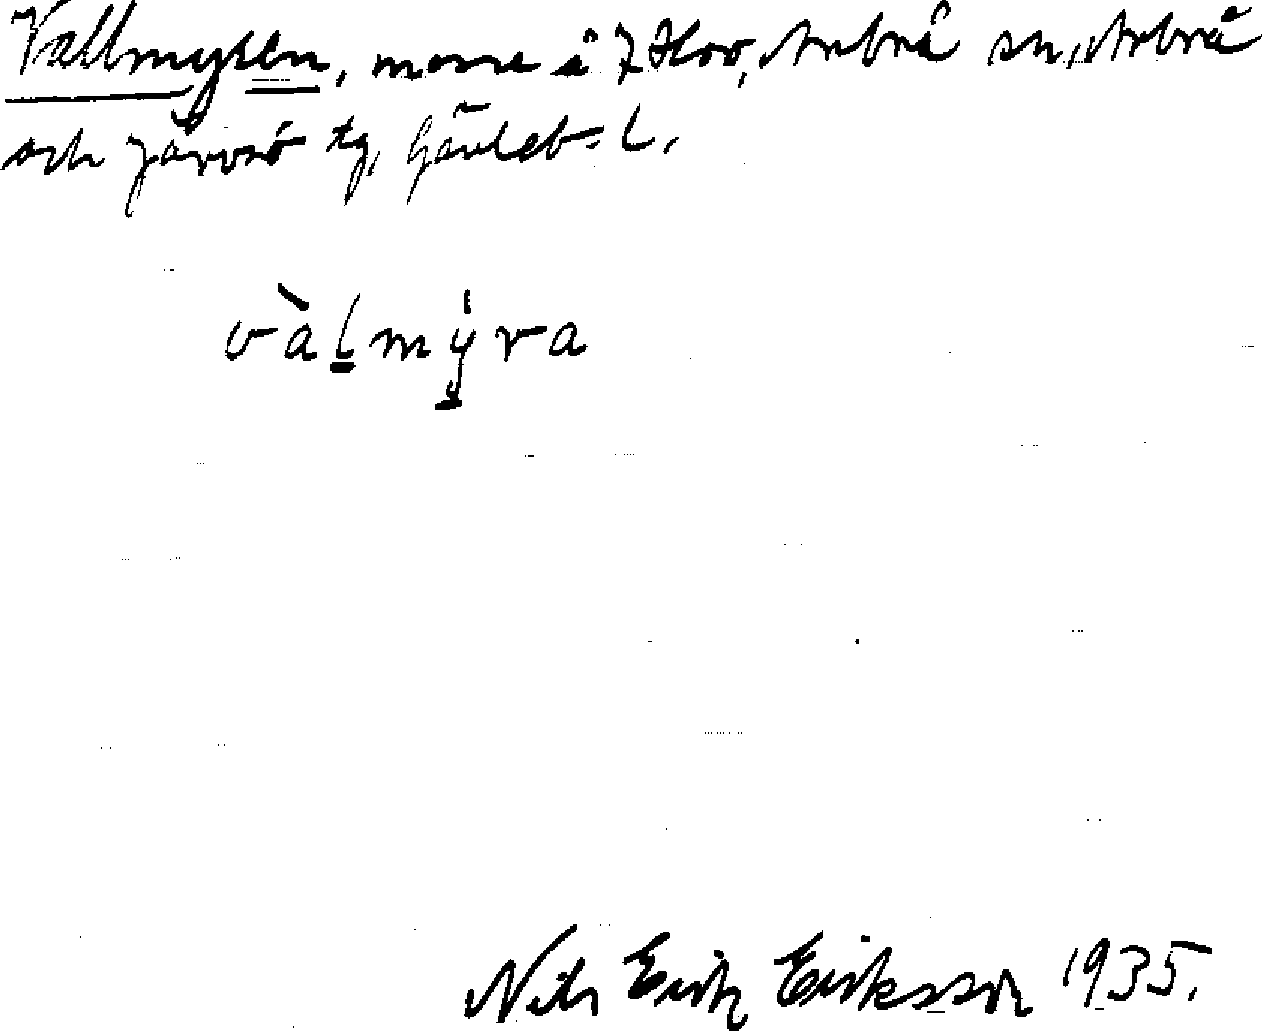 Vallmyren, mosse i 7 Hov, Arbrå sn, Arbrå
och Järvsö tg, Gävleb. l.
vàlmýra
Nils Erik Eriksson 1935.